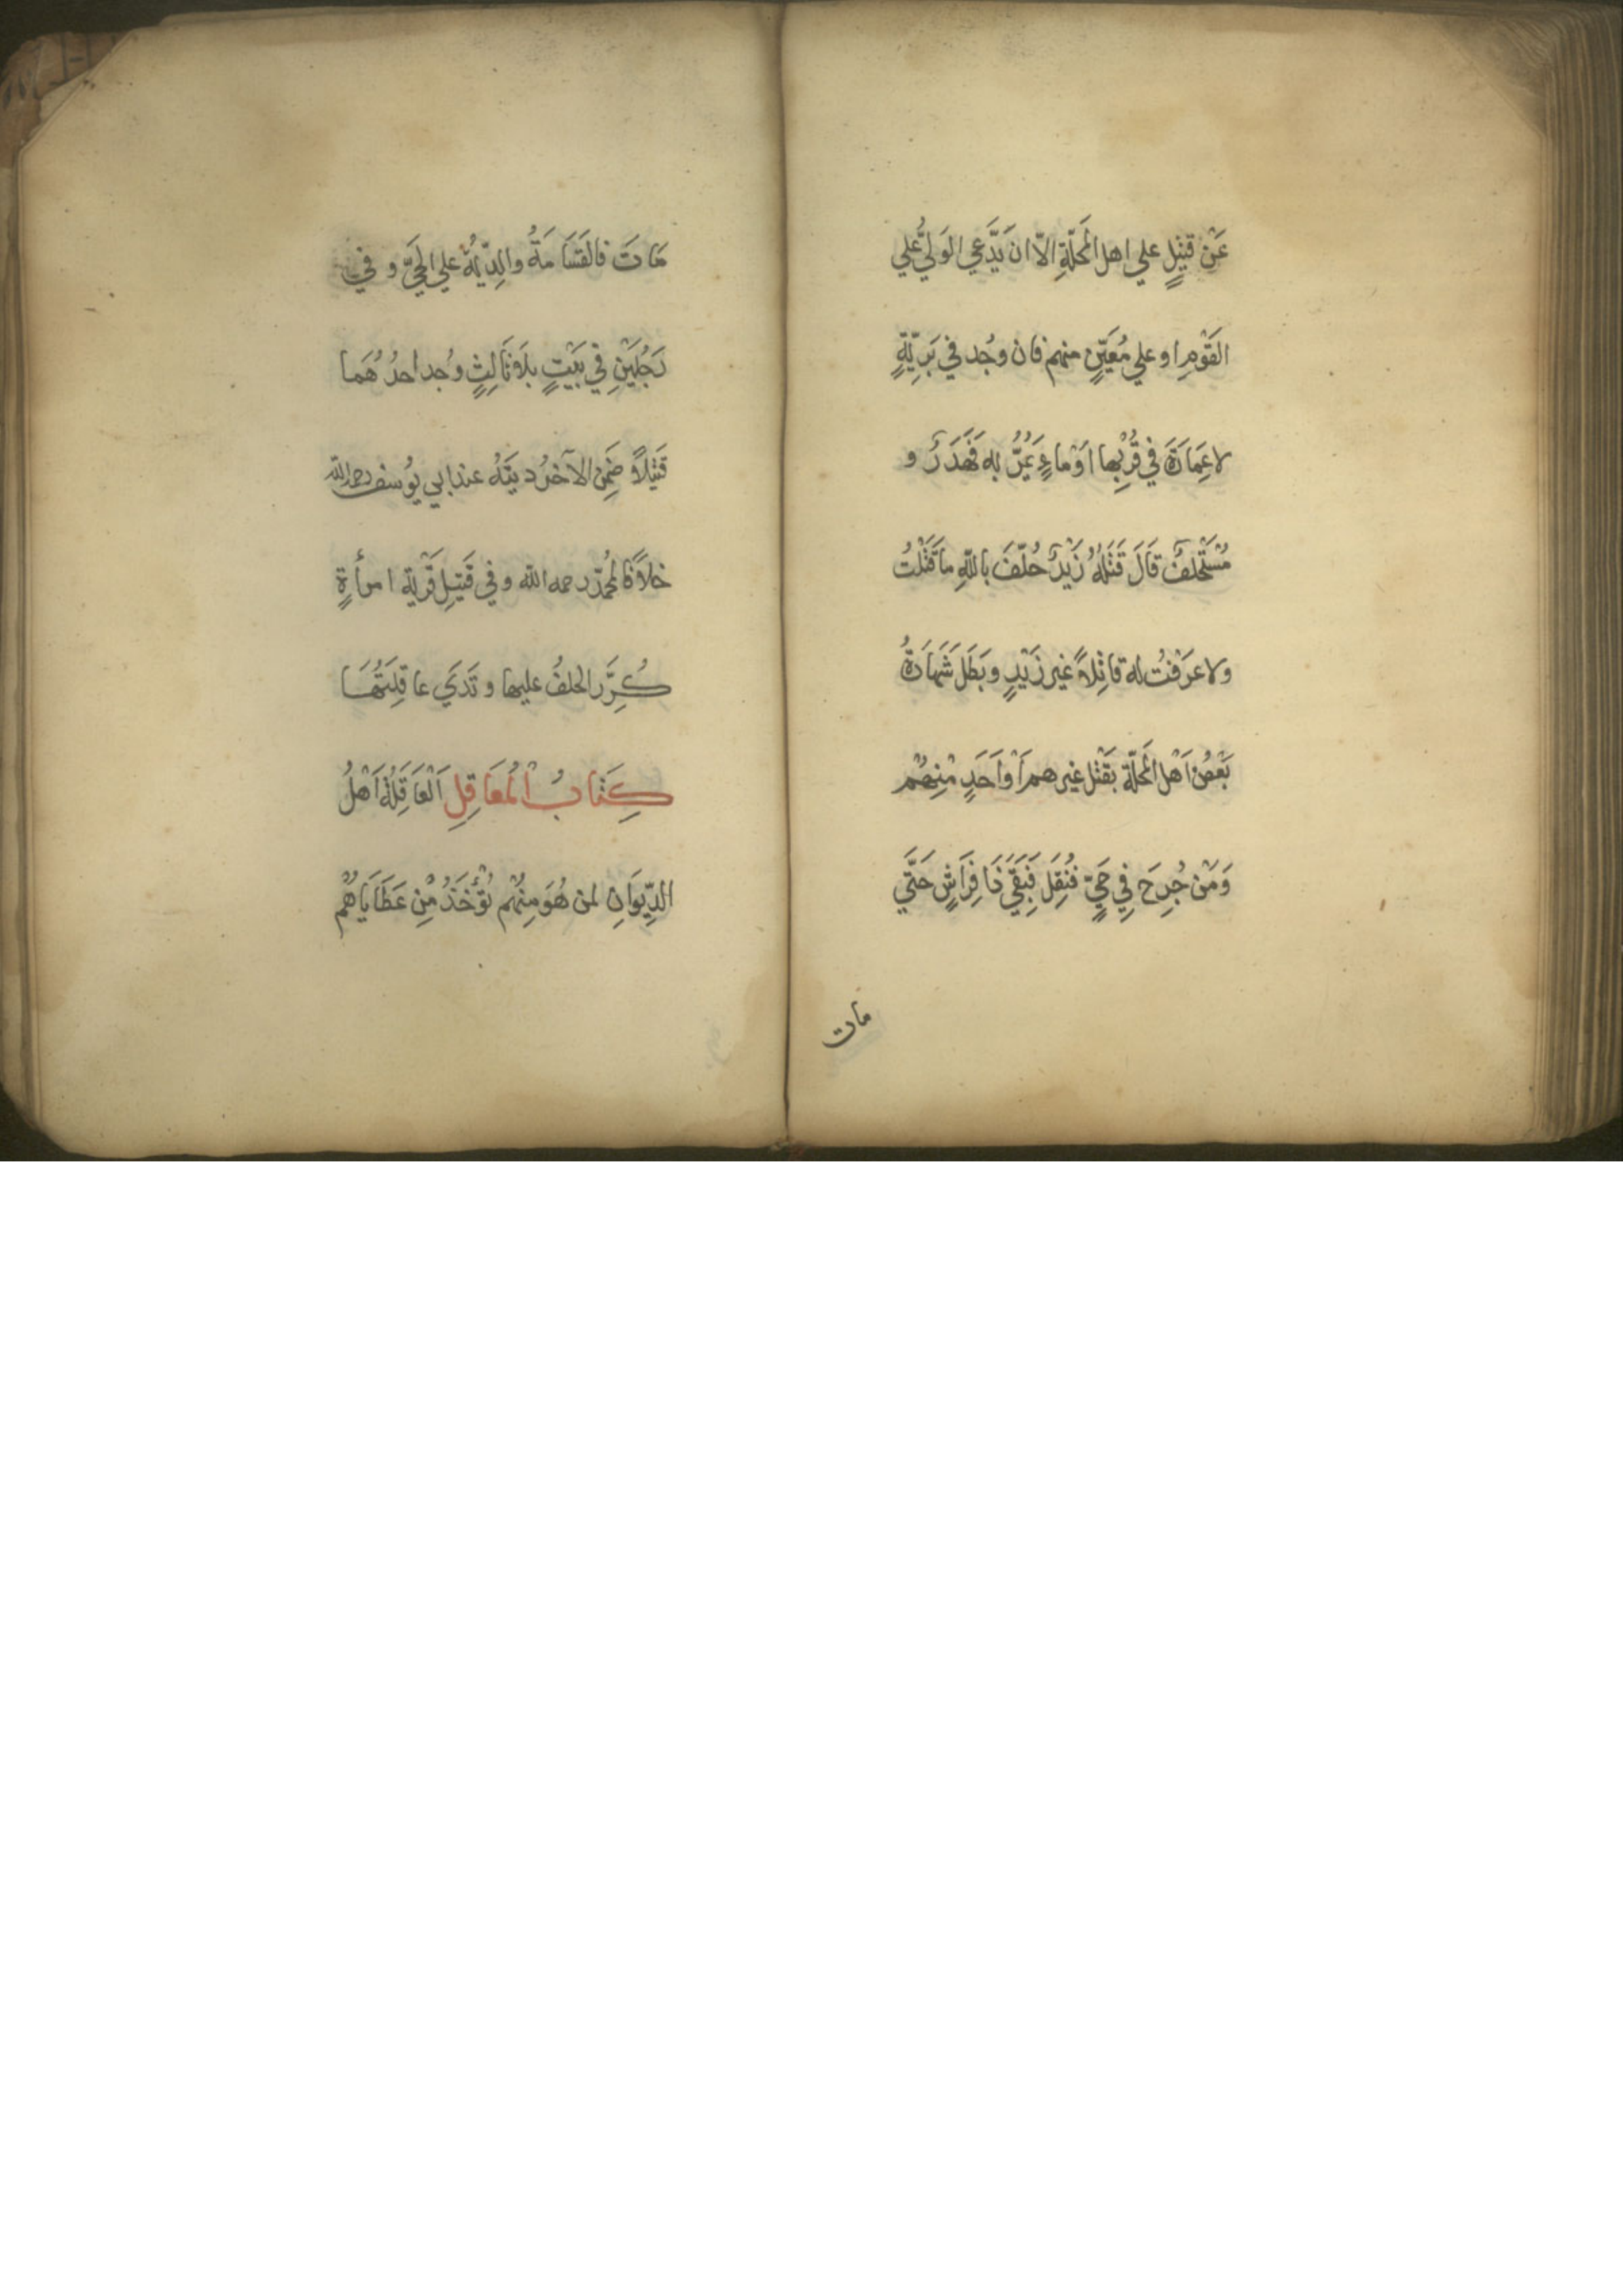 عَنْ قَتِيْلٍ علي اهل المَحلّةِ الاّ ان يَدَّعي الوَليُّ علي
القَوْمِ او علي مُعَيَّنٍ منهم فان وجُد في بَرِّيّةٍ
لا عِمَارَةَ في قُرْبِها اَوْ ماءٍ يَمُرُّ به فَهَدَرٌ و
مُسْتَحْلَفٌ قَالَ قَتَلَهُ زَيْدٌ حُلِّفَ باللّهِ ما قَتَلْتُ
ولا عرَفْتُ له قاتِلاً غير زَيْدٍ وبَطَلَ شَهَادَةُ
بَعْضُ اَهْل المَحلّة بقَتْل غيرهم اَوْ وَاحَدٍ مْنِهُمْ
وَمَنْ جُرِحَ فِي حَيٍّ فنُقِلَ فَبَقِيَ ذَا فِرَاشٍ حَتَّي
مات
مَاتَ فالقَسَامَةُ والدِّيَةُ علي الحَيِّ و في
رَجُلَيْنِ في بَيْتٍ بلَا ثَالِثٍ وُجد احدُهُمَا
قَتْيلاً ضَمِنَ الآخرُ ديَتَهُ عند ابي يُوسف رحمه الله
خلاَفًا لمُحمّد رحمه الله و في قَتيلِ قَرْية امرأةٍ
كُرِّرَ الحلفُ عليها و تَدَي عاقِلَتُهَا
كِتَابُ الْمَعَاقِلِ اَلْعَاقِلَةُ اَهْلُ
الدِّيوَانِ لمن هُوَ مِنْهُم تُؤْخَذُ مْنِ عَطَايَاهُمْ